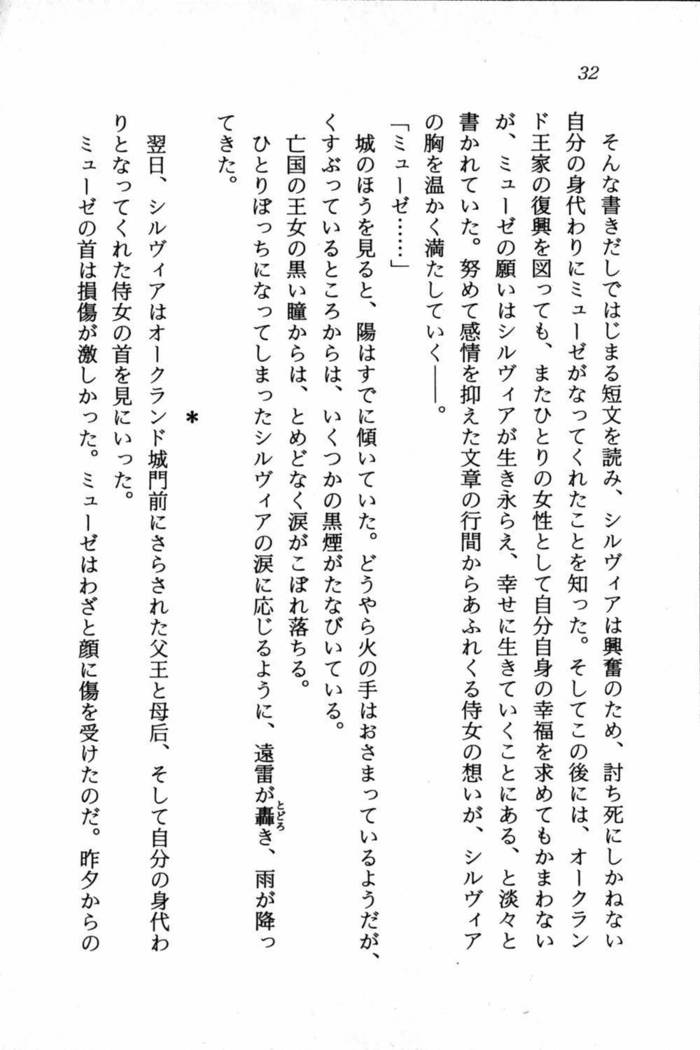 32
そんな書きだしではじまる短文を読み、シルヴィアは興奮のため、討ち死にしかねない
自分の身代わりにミューゼがなってくれたことを知った。そしてこの後には、オークラン
ド王家の復興を図っても、またひとりの女性として自分自身の幸福を求めてもかまわない
が、ミューゼの願いはシルヴィアが生き永らえ、幸せに生きていくことにある、と淡々と
書かれていた。努めて感情を抑えた文章の行間からあふれくる侍女の想いが、シルヴィア
の胸を温かく満たしていく――。
「ミューゼ……」
城のほうを見ると、陽はすでに傾いていた。どうやら火の手はおさまっているようだが、
くすぶっているところからは、いくつかの黒煙がたなびいている。
亡国の王女の黒い瞳からは、とめどなく涙がこぼれ落ちる。
ひとりぼっちになってしまったシルヴィアの涙に応じるように、遠雷が轟き、雨が降っ
とどろ
てきた。
*
翌日、シルヴィアはオークランド城門前にさらされた父王と母后、そして自分の身代わ
りとなってくれた侍女の首を見にいった。
ミューゼの首は損傷が激しかった。ミューゼはわざと顔に傷を受けたのだ。昨夕からの